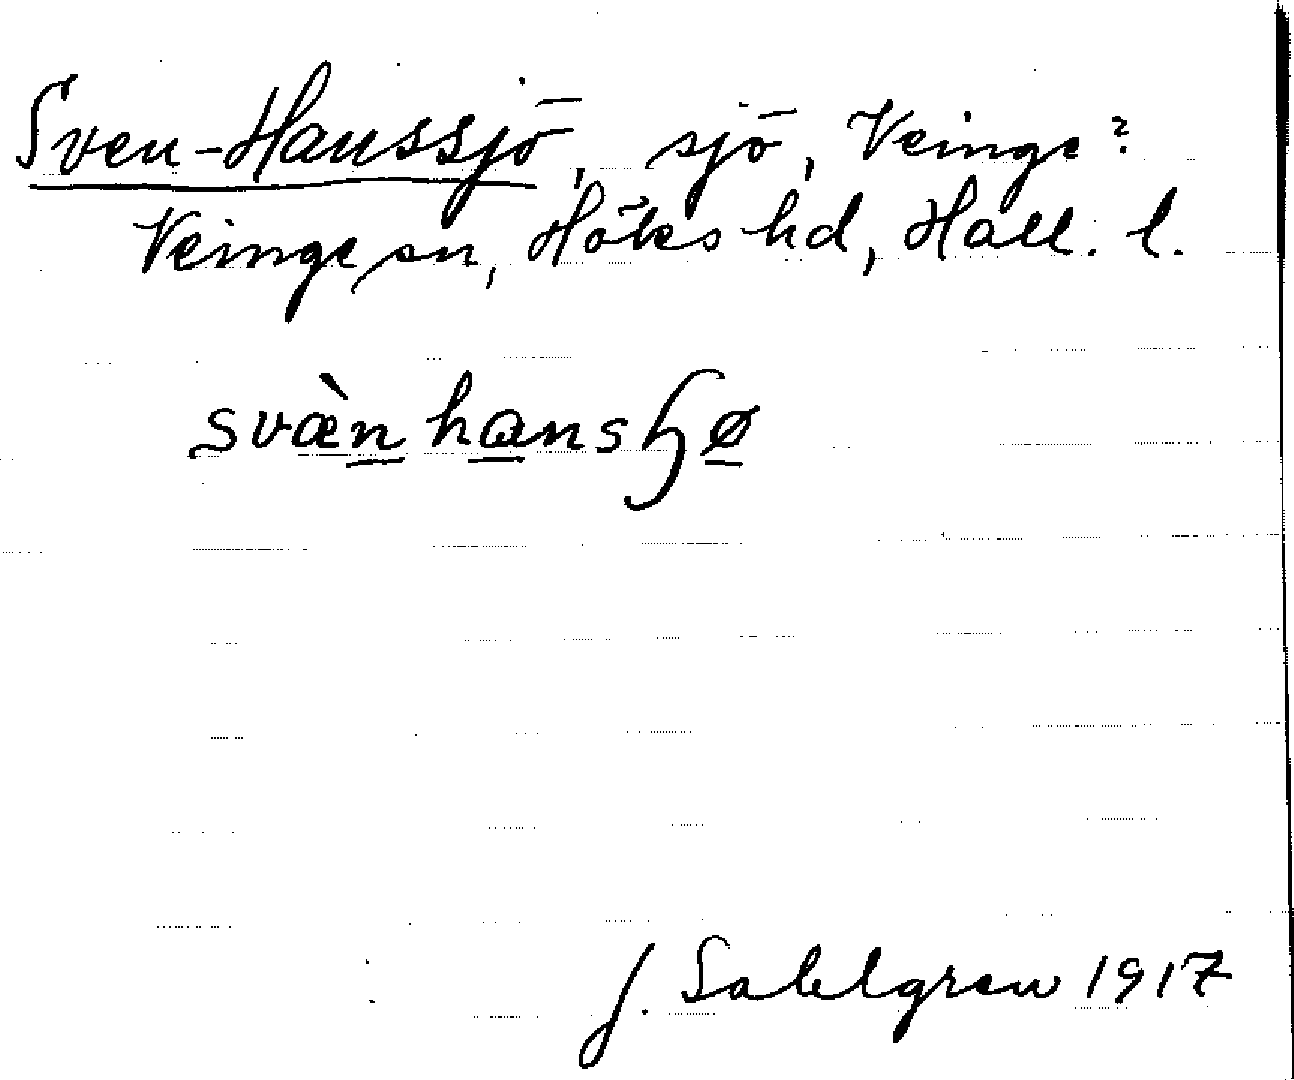 Sven-Hanssjö, sjö, Veinge?
Veinge sn, Höks hd, Hall. l.
svæ̀n hansɧø
J. Sahlgren 1917